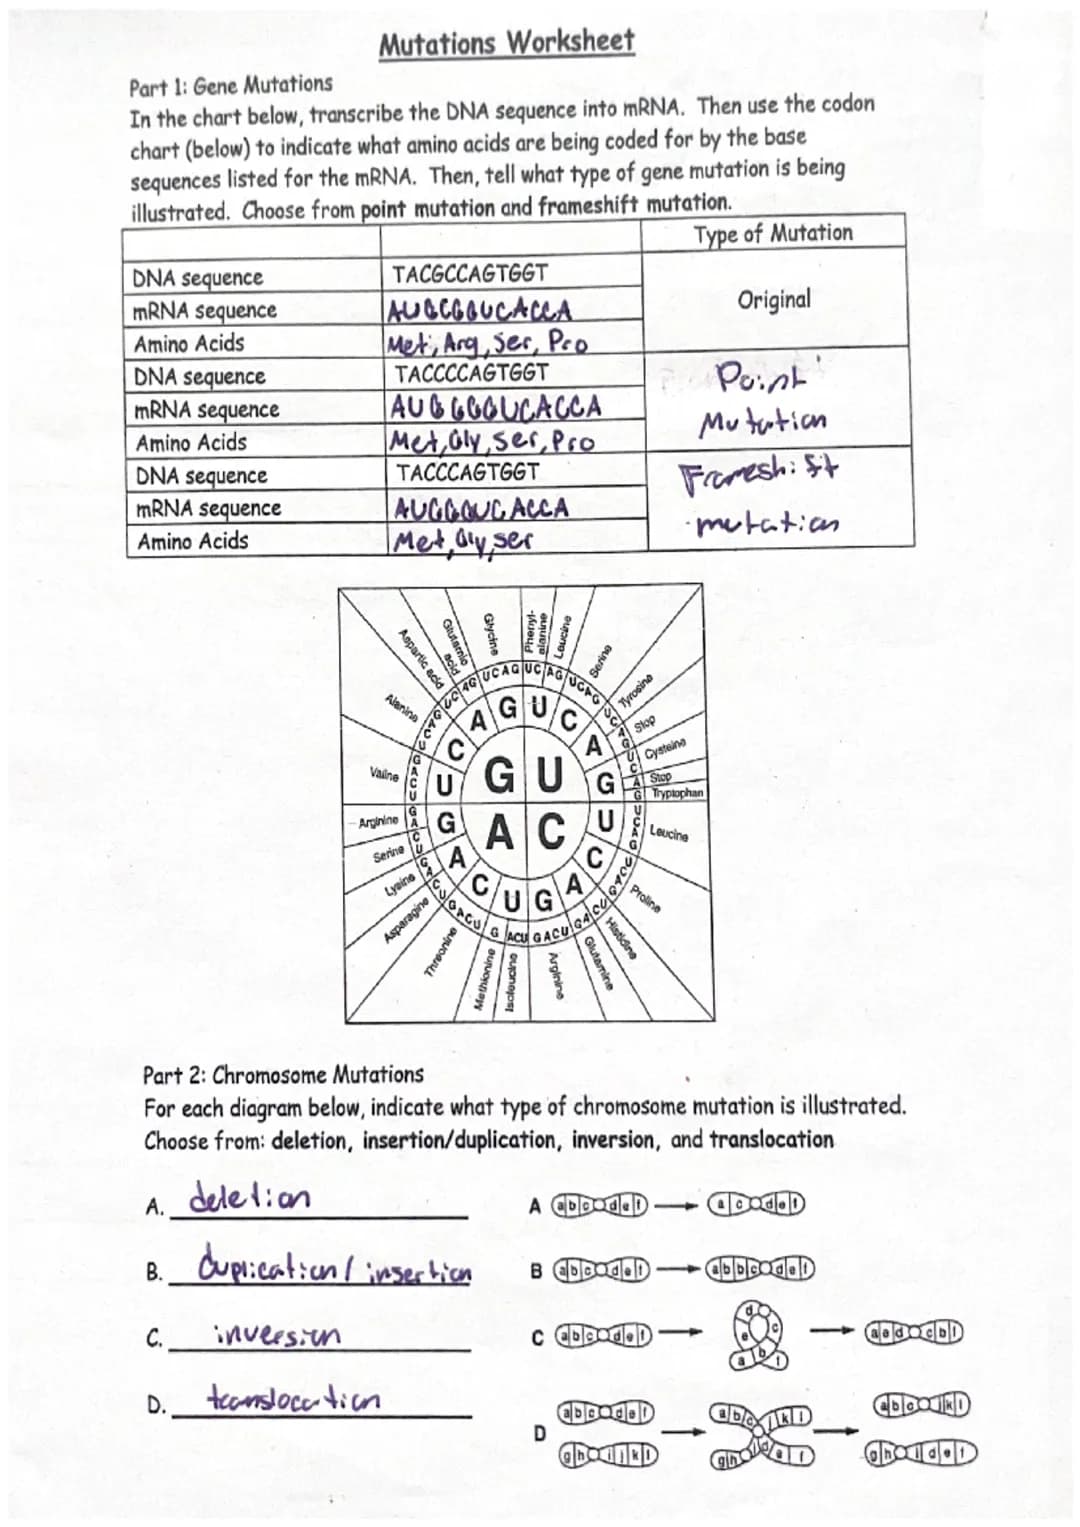 Mutations Worksheet
Part 1: Gene Mutations
In the chart below, transcribe the DNA sequence into mRNA. Then use the codon
chart (below) to indicate what amino acids are being coded for by the base
sequences listed for the mRNA. Then, tell what type of gene mutation is being
illustrated. Choose from point mutation and frameshift mutation.
Type of Mutation
DNA sequence TACGCCAGTGGT
mRNA sequence AUGCGGUCACCA
Original
Amino Acids Met, Arg, Ser, Pro
DNA sequence TACCCCAGTGGT
Point
mRNA sequence AUGGGGUCACCA
Mutation
Amino Acids Met, Gly, Ser, Pro
DNA sequence TACCCAGTGGT
Frameshift
mRNA sequence AUGGGUCACCA
mutation
Amino Acids Met, Gly, ser
Aspartic acid
Glutamic acid
Glycine
Phenyl-alanine
Leucine
Serine
Tyrosine
Stop
Cysteine
Stop
Tryptophan
Leucine
Proline
Histidine
Glutamine
Arginine
Isoleucine
Methionine
Threonine
Asparagine
Lysine
Serine
Arginine
Valine
Alanine
G U
A C
Part 2: Chromosome Mutations
For each diagram below, indicate what type of chromosome mutation is illustrated.
Choose from: deletion, insertion/duplication, inversion, and translocation
A. deletion A a b c d e f a c d e f
B. duplication / insertion B a b c d e f a b b c d e f
C. inversion C a b c d e f d c e a b f a e d c b f
D. translocation D a b c d e f a b c j k l a b c j k l
g h i j k l g h i d e f g h i d e f